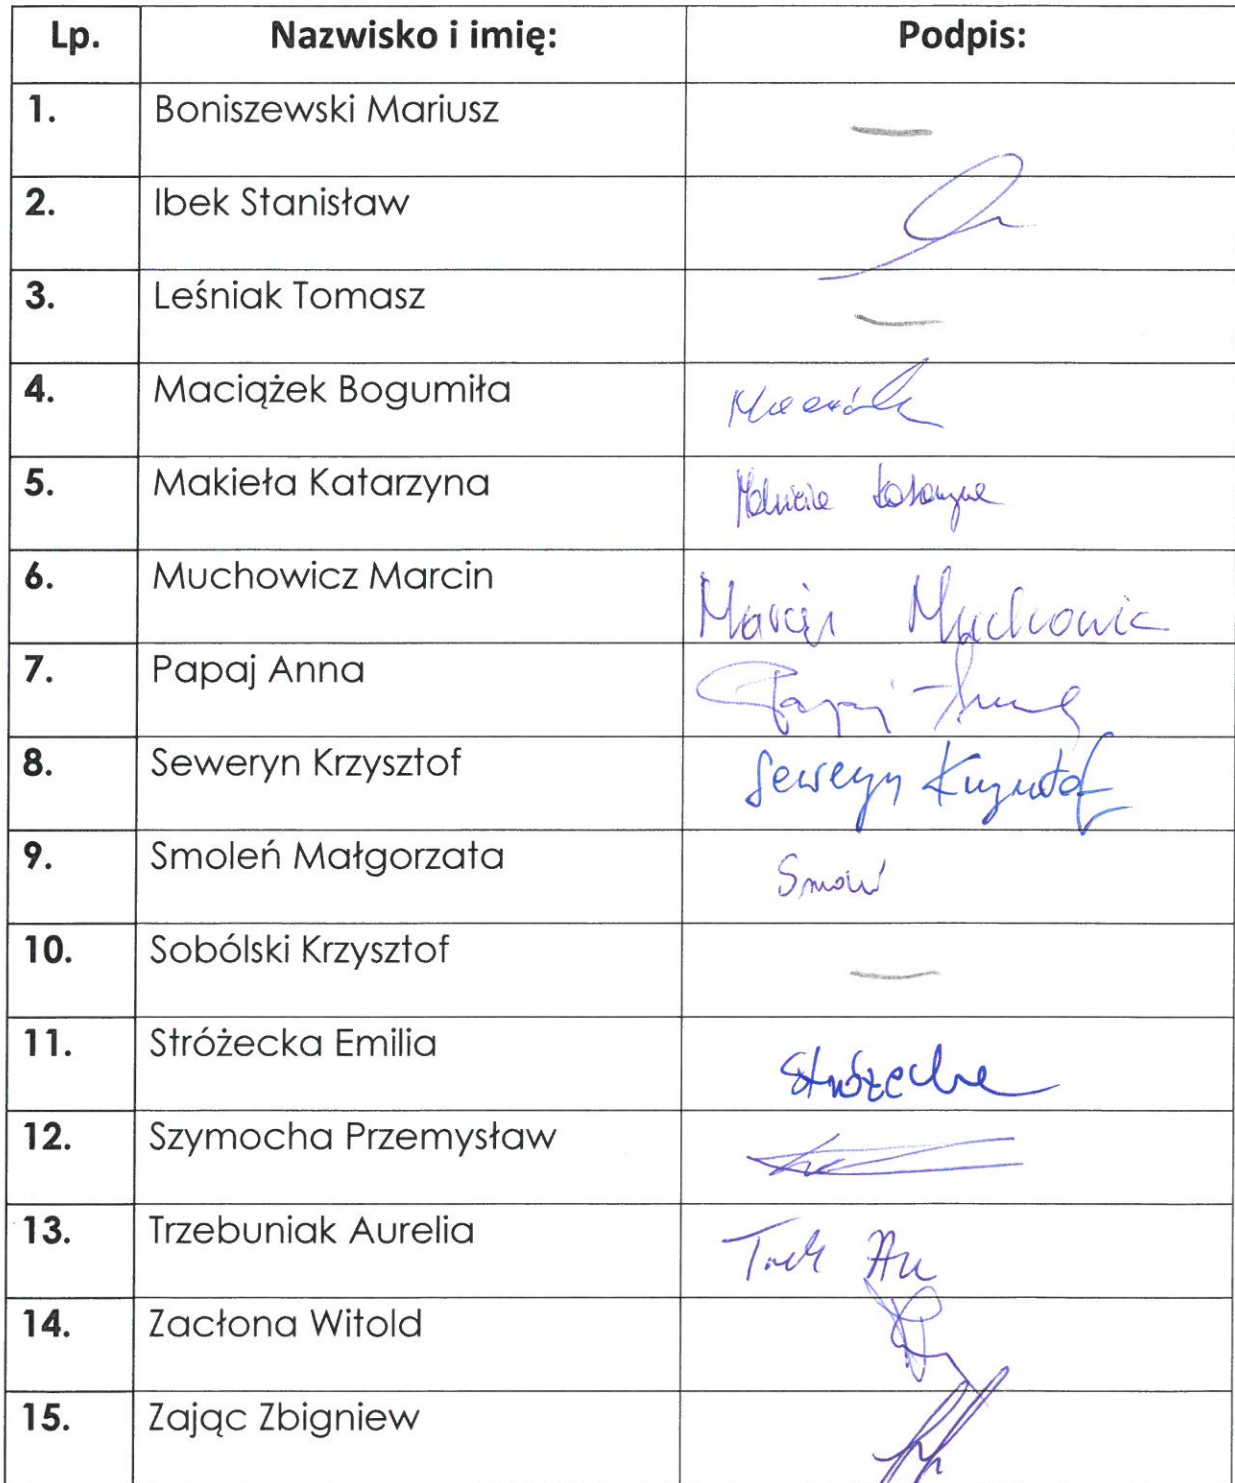 Lp. Nazwisko i imię: Podpis:
1. Boniszewski Mariusz —
2. Ibek Stanisław
3. Leśniak Tomasz —
4. Maciążek Bogumiła
5. Makieła Katarzyna
6. Muchowicz Marcin Marcin Muchowicz
7. Papaj Anna Papaj Anna
8. Seweryn Krzysztof Seweryn Krzysztof
9. Smoleń Małgorzata
10. Sobólski Krzysztof —
11. Stróżecka Emilia Stróżecka
12. Szymocha Przemysław
13. Trzebuniak Aurelia
14. Zacłona Witold
15. Zając Zbigniew